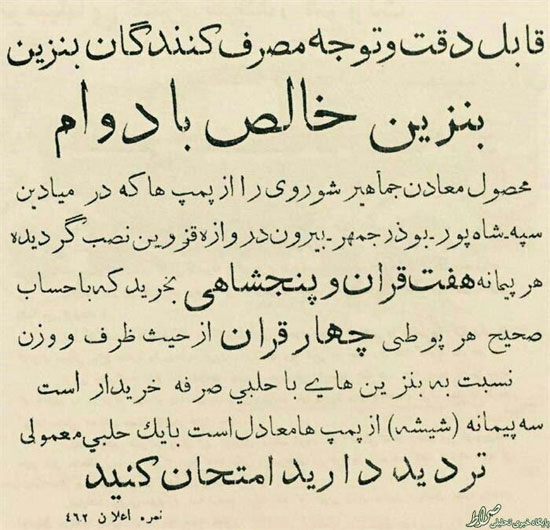 قابل دقت و توجه مصرف کنندگان بنزین
بنزین خالص با دوام
محصول معادن جماهیر شوروی را از پمپ ها که در میادین
سپه ـ شاه پور ـ بوذرجمهر ـ بیرون دروازه قزوین نصب گردیده
هر پیمانه هفت قران و پنجشاهی بخرید که با حساب
صحیح هر پوطی چهار قران از حیث ظرف و وزن
نسبت به بنزین هاے با حلبي صرفه خریدار است
سه پیمانه (شیشه) از پمپ ها معادل است با یك حلبي معمولی
تردید دارید امتحان کنید
نمره اعلان ۴۶۲
صراط
پایگاه خبری تحلیلی
www.seratnews.ir